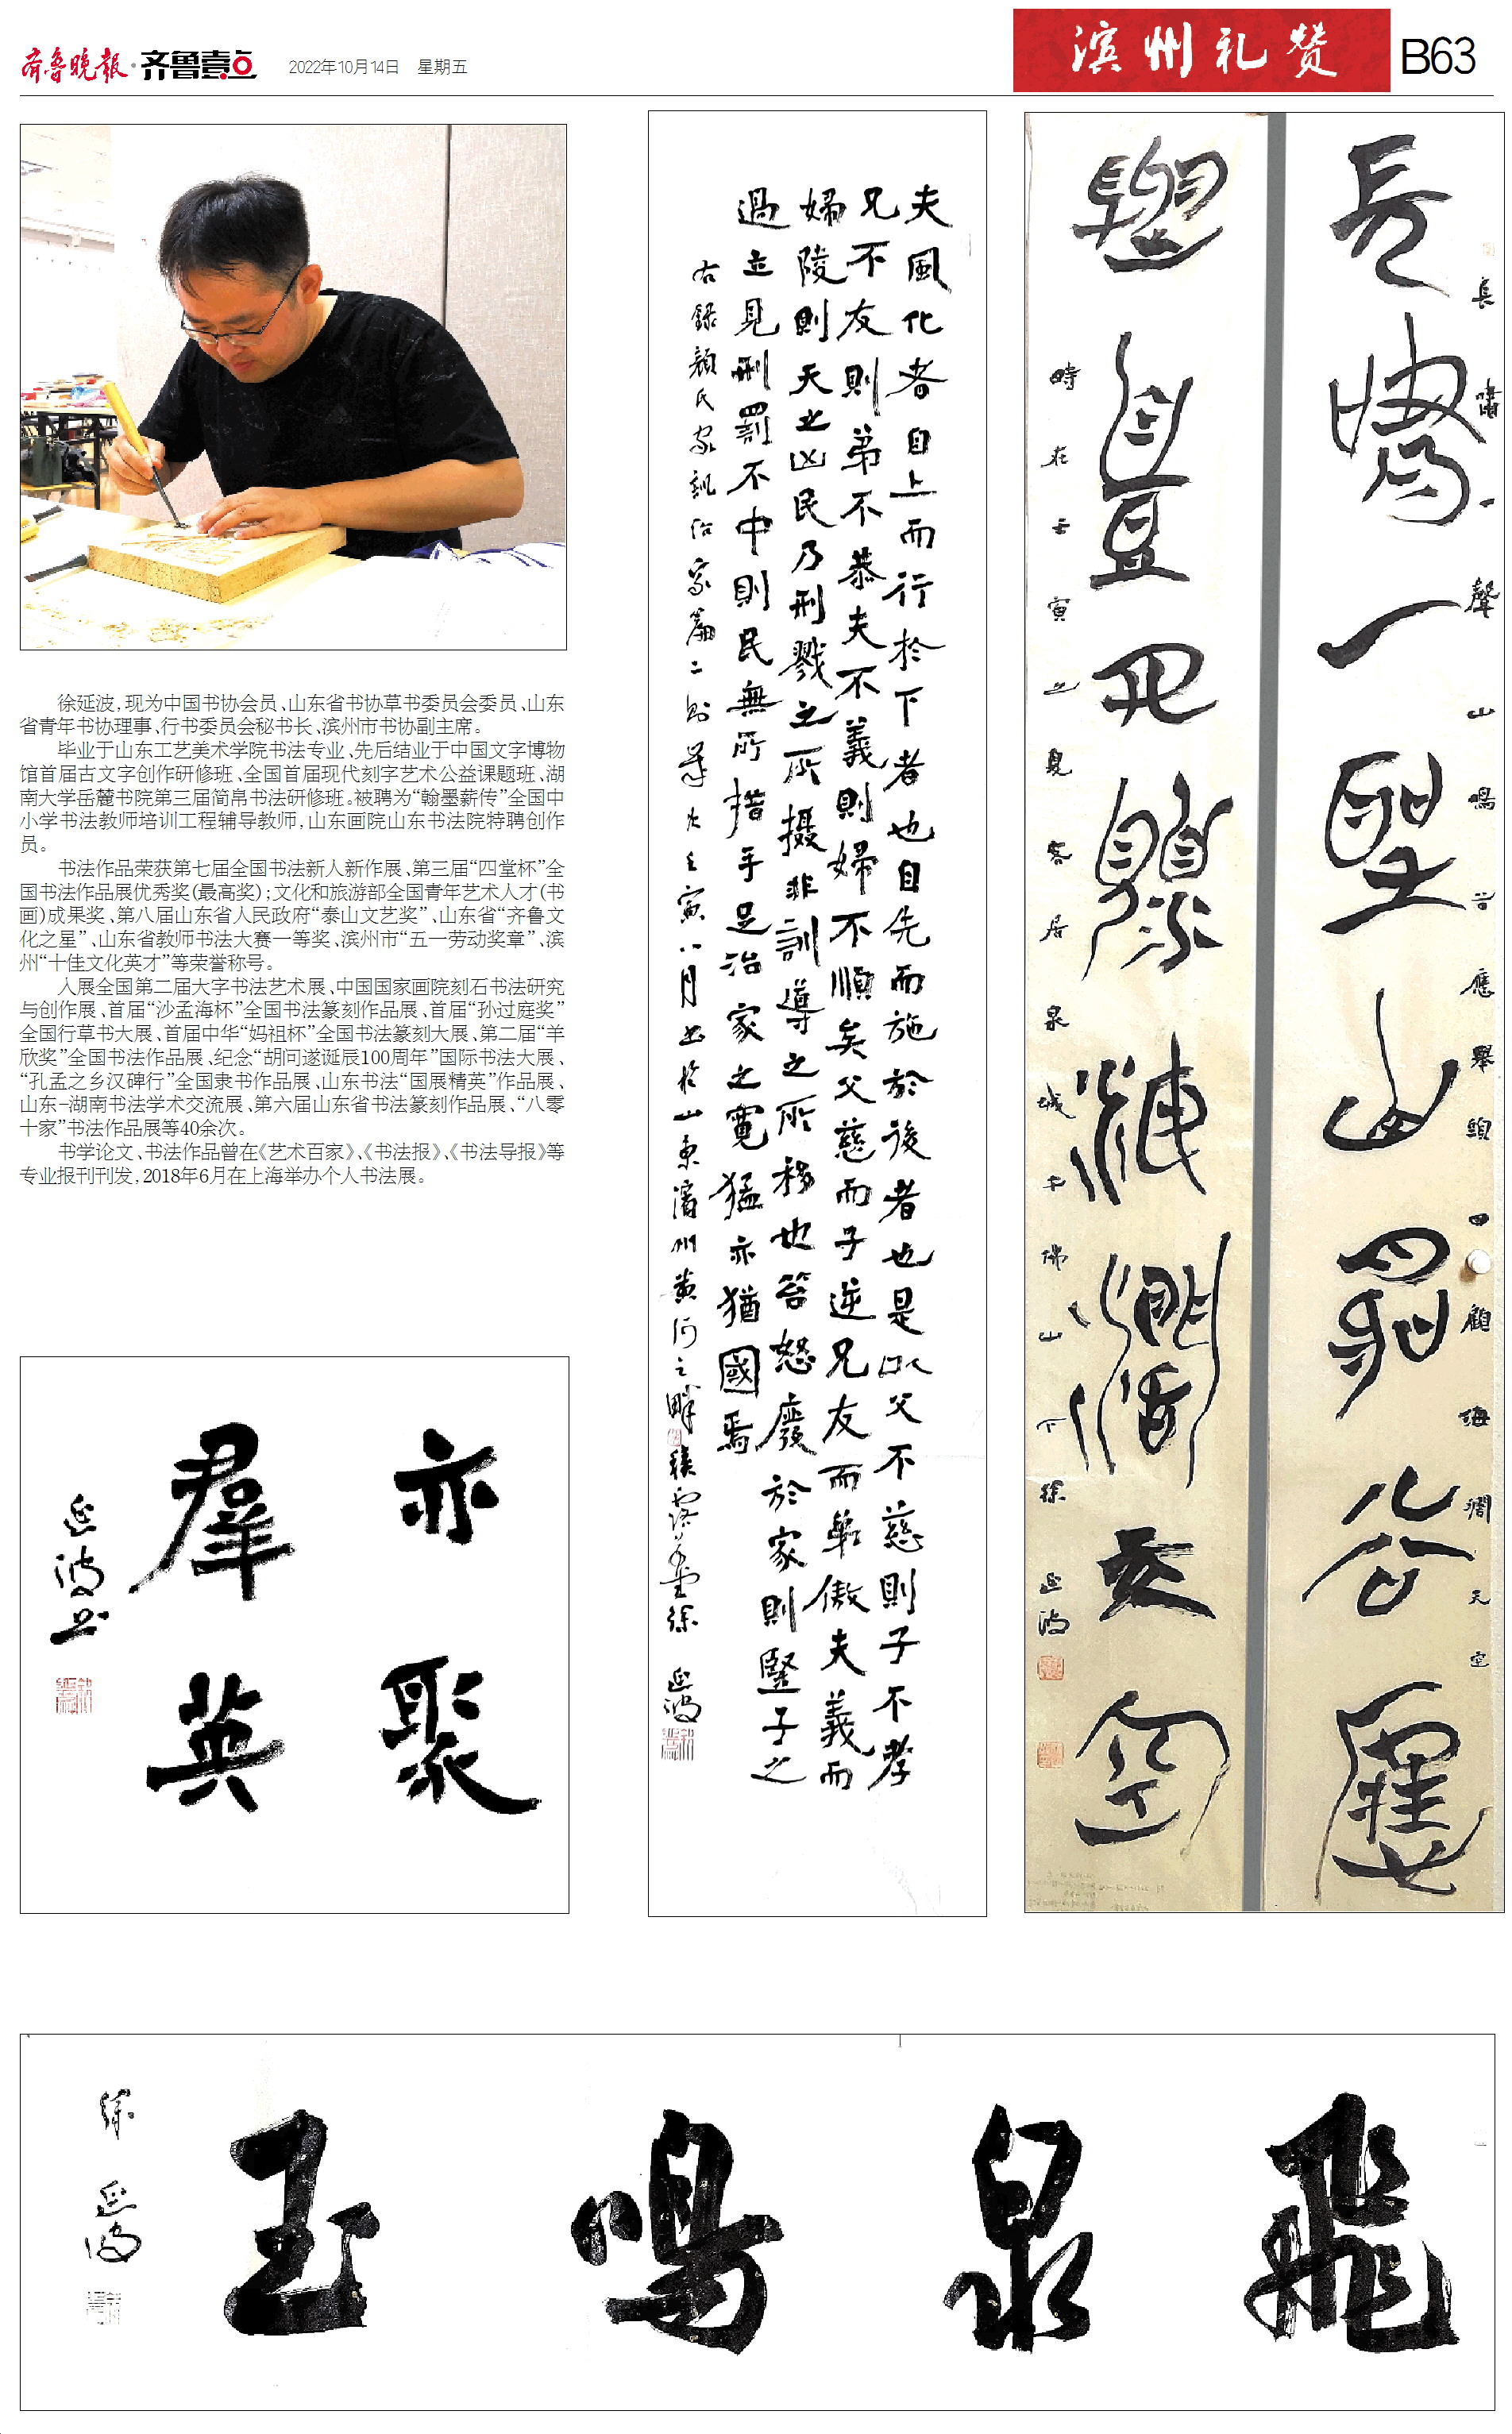 齐鲁晚报·齐鲁壹点
2022年10月14日 星期五
滨州礼赞
B63
徐延波，现为中国书协会员、山东省书协草书委员会委员、山东
省青年书协理事、行书委员会秘书长、滨州市书协副主席。
毕业于山东工艺美术学院书法专业、先后结业于中国文字博物
馆首届古文字创作研修班、全国首届现代刻字艺术公益课题班、湖
南大学岳麓书院第三届简帛书法研修班。被聘为“翰墨薪传”全国中
小学书法教师培训工程辅导教师，山东画院山东书法院特聘创作
员。
书法作品荣获第七届全国书法新人新作展、第三届“四堂杯”全
国书法作品展优秀奖（最高奖）；文化和旅游部全国青年艺术人才（书
画）成果奖、第八届山东省人民政府“泰山文艺奖”、山东省“齐鲁文
化之星”、山东省教师书法大赛一等奖、滨州市“五一劳动奖章”、滨
州“十佳文化英才”等荣誉称号。
入展全国第二届大字书法艺术展、中国国家画院刻石书法研究
与创作展、首届“沙孟海杯”全国书法篆刻作品展、首届“孙过庭奖”
全国行草书大展、首届中华“妈祖杯”全国书法篆刻大展、第二届“羊
欣奖”全国书法作品展、纪念“胡问遂诞辰100周年”国际书法大展、
“孔孟之乡汉碑行”全国隶书作品展、山东书法“国展精英”作品展、
山东-湖南书法学术交流展、第六届山东省书法篆刻作品展、“八零
十家”书法作品展等40余次。
书学论文、书法作品曾在《艺术百家》、《书法报》、《书法导报》等
专业报刊刊发，2018年6月在上海举办个人书法展。
亦聚
羣英
延波书
夫風化者自上而行於下者也自先而施於後者也是以父不慈則子不孝
兄不友則弟不恭夫不義則婦不順矣父慈而子逆兄友而弟傲夫義而
婦陵則天之凶民乃刑戮之所摄非訓導之所移也笞怒廢於家則竪子之
過立見刑罰不中則民無所措手足治家之寬猛亦猶國焉
右録顔氏家訓治家篇二則 壬寅八月書於山東濱州黄河之畔 徐延波
長嘯一聲山鳴谷應
舉頭四顧海濶天空
長嘯一聲山鳴谷應舉頭四顧海濶天空
時在壬寅之夏客居泉城千佛山下徐延波
飛泉鳴玉
徐延波